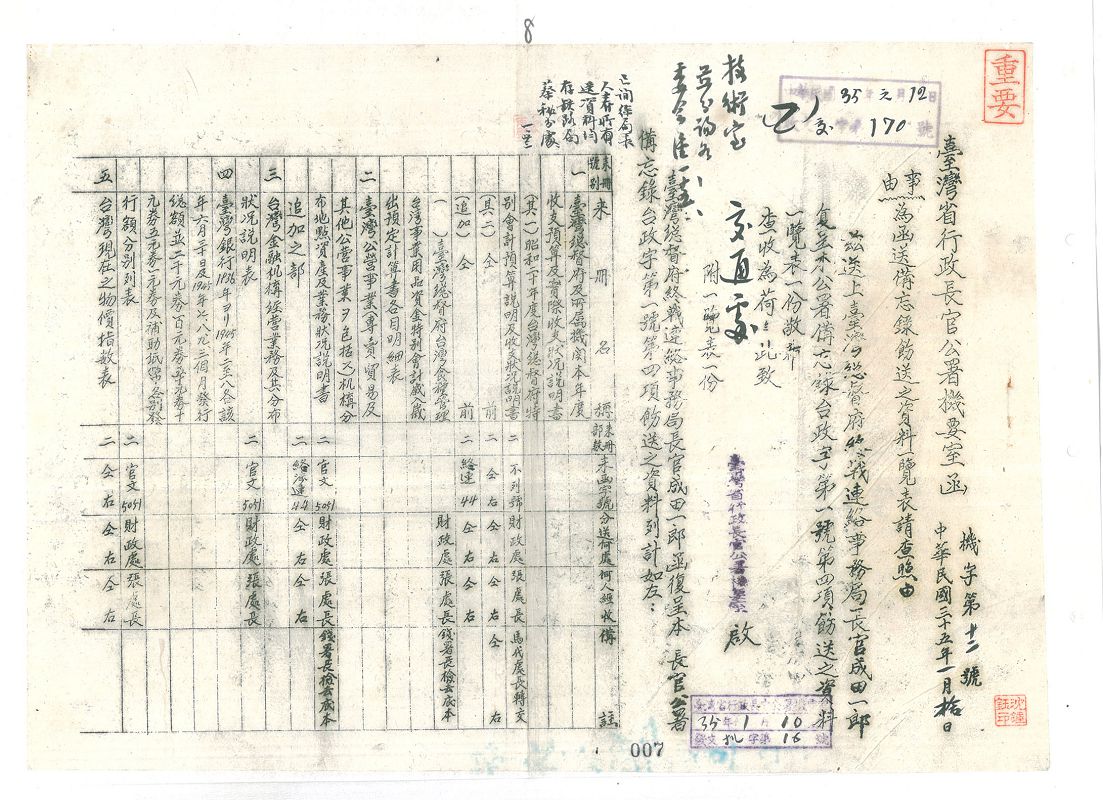 8
重要
35 元月12日
170號
臺灣省行政長官公署機要室函
機字第十二號
中華民國三十五年一月拾日
事由
為函送備忘錄飭送之資料一覽表請查照由
茲送上臺灣總督府終戰連絡事務局長官成田一郎
復呈本公署備忘錄台政字第一號第四項飭送之資料
一覽表一份敬祈
查收為荷此致
交通處
附一覽表一份
臺灣省行政長官公署機要室
啟
技術室
臺灣總督府終戰連絡事務局長官成田一郎函復呈本長官公署
備忘錄台政字第一號第四項飭送之資料列計如左：
來冊號別
來冊名稱
來冊部數
來函字號
分送何處
何人經收
備註
一
臺灣總督府及所屬機關本年度
收支預算及實際收支狀況說明書
(其一)昭和二十年度台灣總督府特
別會計預算說明及收支狀況說明書
二
不列號
財政處
張處長
馬代處長轉交
(其二)
仝前
二
仝右
仝右
仝右
仝右
(追加)
仝前
二
絡連44
仝右
仝右
(一)臺灣總督府台灣食糧管理
台湾事業用品資金特別會計歲入歲
出預定計算書各目明細表
財政處
張處長
錢署長檢去底本
二
臺灣公營事業(專賣貿易及
其他公營事業ヲ包括ス)机構分
布地點資產及業務狀況說明書
二
官文5051
財政處
張處長
錢署長檢去底本
追加之部
二
絡涉連44
仝右
仝右
三
台灣金融机構經營業務及其分布
狀況說明表
二
官文5051
財政處
張處長
四
臺灣銀行1936年ヨリ1945年ニ至ル各該
年六月三十日及1945年七、八、九三個月發行
總額並二千元券百元券五十元券十
元券五元券一元券及補助紙幣各別發
行額分別列表
二
官文5051
財政處
張處長
五
台灣現在之物價指數表
二
仝右
仝右
仝右
35年1月10
發文机字第16號
007